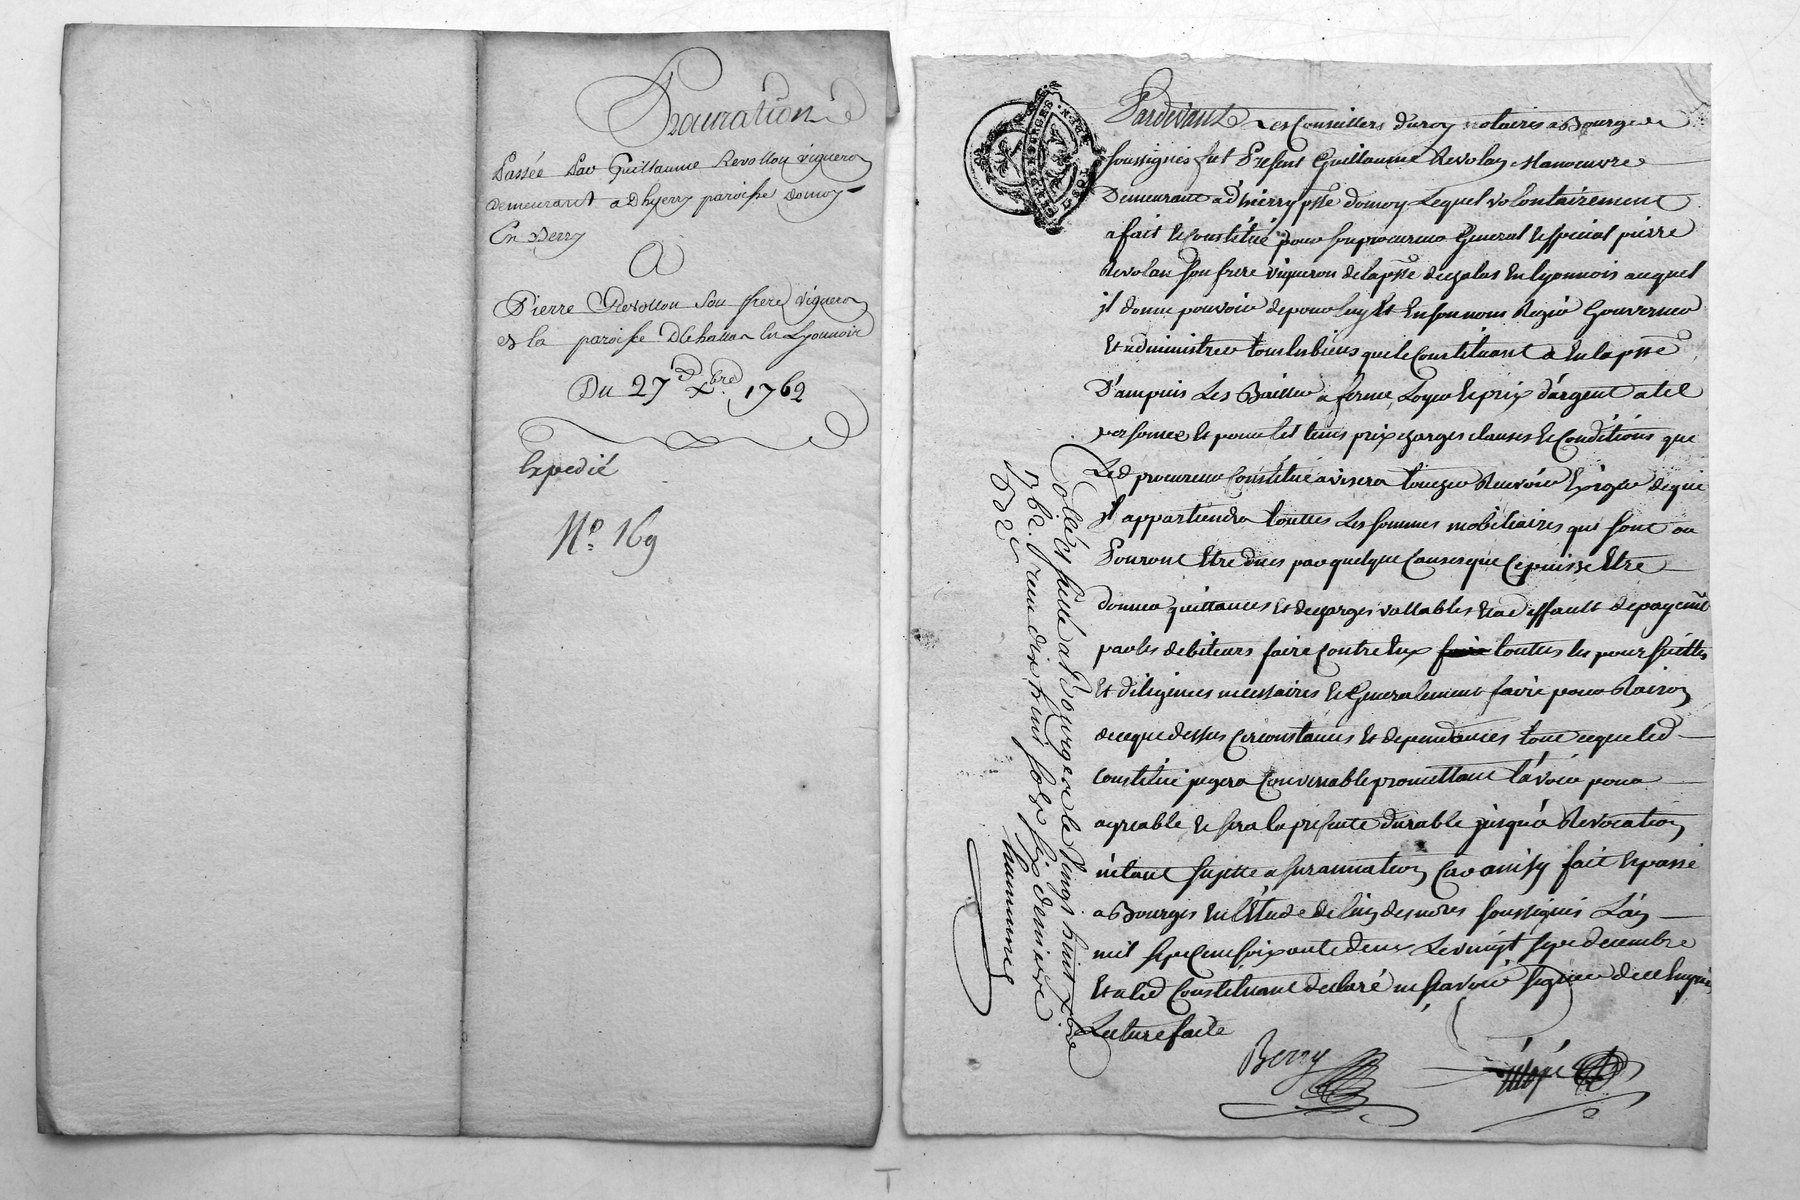 Procuration
Passée Par Guillaume Revollon vigneron
demeurant a Dhyerry paroisse Domoy
En Berry
A
Pierre Revollon Son frere vigneron
de la paroisse Dechallan En Lyonnois
Du 27 Xbre 1762
Expedié
N° 169
Pardevant Les Conseillers du roy notaires a Bourges
soussignés fut Present Guillaume Revolan Manoeuvre
Demeurant a d'hierry psse domoy Lequel volontairement
a fait & Constitué pour son procureur General & special pierre
Revolan son frere vigneron de la psse dechalas En lyonnois auquel
il donne pouvoir de pour luy Et En son nom Regir Gouverner
Et administrer tous les biens que le Constituant a En la psse
D'ampuis Les Bailler a ferme, Loyer & prix d'argent a tel
personnes Et pour tel tems prix charges clauses & Conditions que
Led procureur Constitué avisera toucher Recevoir Exiger de qui
il appartiendra touttes Les sommes mobiliaires qui sont ou
Pouront Etre dues par quelque Causes que Ce puisse Etre
donner quittances Et decharges vallables & a deffault de payemt
par les debiteurs faire Contre Eux touttes les poursuittes
Et diligences necessaires & Generalement faire pour Raison
de ceque dessus Circonstances Et dependances tout ceque led
Constitué jugera Convenable promettant l'avoir pour
agreable, & sera la presente durable jusqu'a Revocation
n'étant sujette a surannation Car ainsy fait & passé
a Bourges En l'Etude de l'un desnores soussignés L'an
mil sept Cent soixante deux Le vingt sept decembre
Et a led Constituant declaré ne sçavoir signer de ce Enquis
Lecture faite
Berry
Collée & scellé a Bourges le vingt huit Xbre
1762. Reçu dix huit sols six deniers